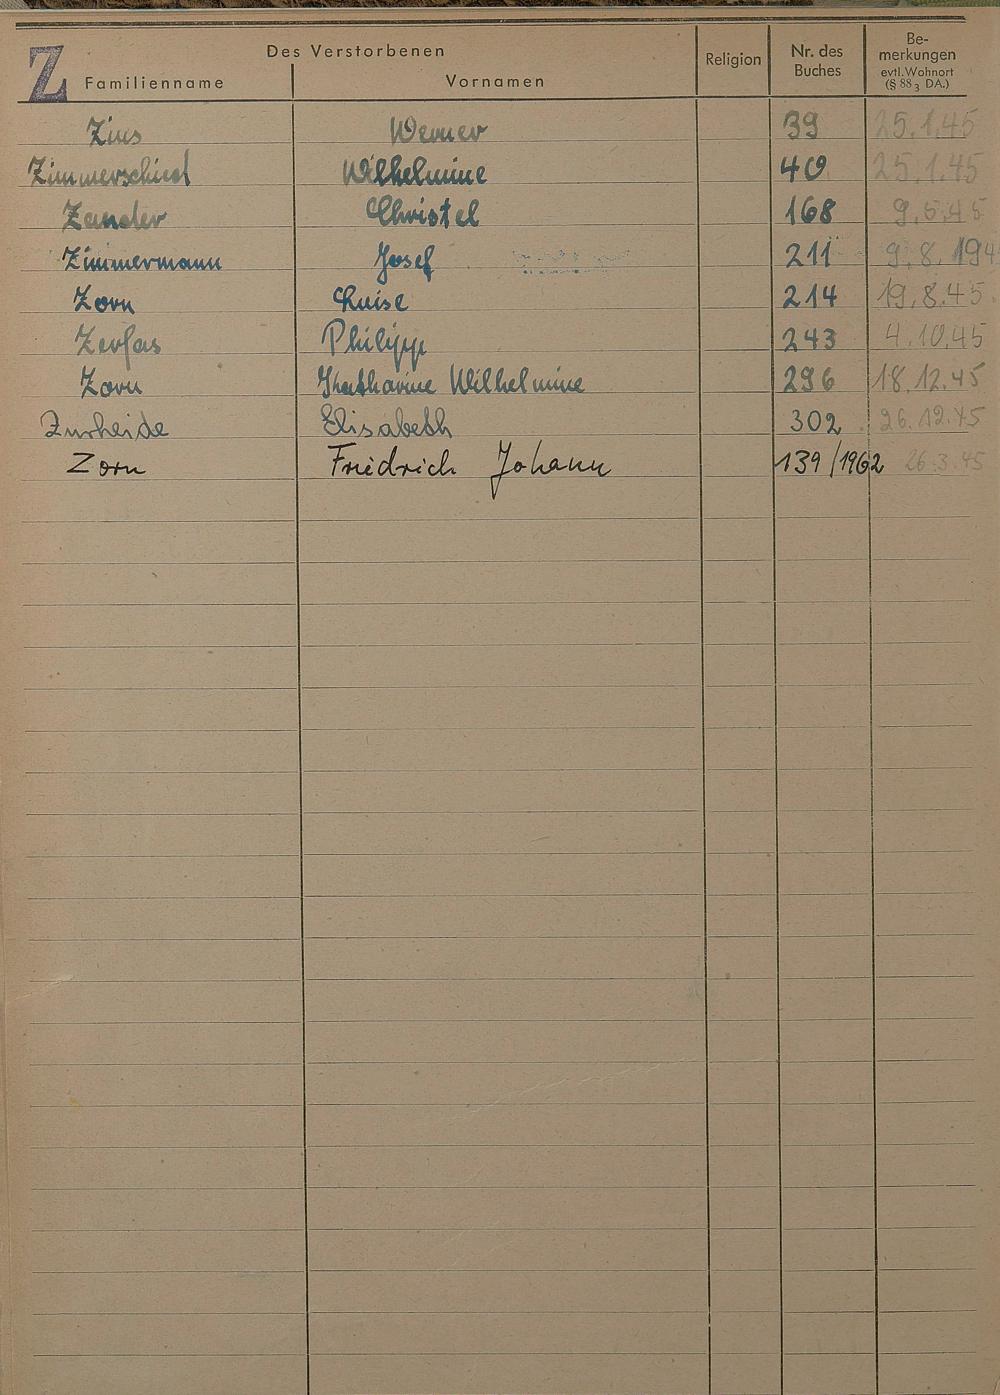 Z
Des Verstorbenen
Familienname Vornamen Religion Nr. des Buches Bemerkungen evtl. Wohnort (§ 88 3 DA.)
Zins Werner 39 25.1.45
Zimmerschied Wilhelmine 40 25.1.45
Zander Christel 168 9.5.45
Zimmermann Josef 211 9.8.194
Zorn Luise 214 19.8.45
Zerfas Philipp 243 4.10.45
Zorn Katharine Wilhelmine 296 18.12.45
Zurheide Elisabeth 302 26.12.45
Zorn Friedrich Johann 139/1962 26.3.45